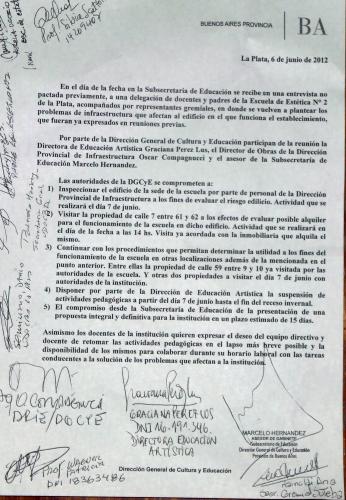 BUENOS AIRES PROVINCIA | BA
La Plata, 6 de junio de 2012
En el día de la fecha en la Subsecretaría de Educación se recibe en una entrevista no
pactada previamente, a una delegación de docentes y padres de la Escuela de Estética Nº 2
de la Plata, acompañados por representantes gremiales, en donde se vuelven a plantear los
problemas de infraestructura que afectan al edificio en el que funciona el establecimiento,
que fueran ya expresados en reuniones previas.
Por parte de la Dirección General de Cultura y Educación participan de la reunión la
Directora de Educación Artística Graciana Perez Lus, el Director de Obras de la Dirección
Provincial de Infraestructura Oscar Compagnucci y el asesor de la Subsecretaría de
Educación Marcelo Hernandez.
Las autoridades de la DGCyE se comprometen a:
1) Inspeccionar el edificio de la sede de la escuela por parte de personal de la Dirección
Provincial de Infraestructura a los fines de evaluar el riesgo edilicio. Actividad que se
realizará el día 7 de junio.
2) Visitar la propiedad de calle 7 entre 61 y 62 a los efectos de evaluar posible alquiler
para el funcionamiento de la escuela en dicho edificio. Actividad que se realizará en
el día de la fecha a las 14 hs. Visita ya acordada con la inmobiliaria que alquila el
mismo.
3) Continuar con los procedimientos que permitan determinar la utilidad a los fines del
funcionamiento de la escuela en otras localizaciones además de la mencionada en el
punto anterior. Entre ellas la propiedad de calle 59 entre 9 y 10 ya visitada por las
autoridades de la escuela. Y otras dos propiedades a visitar el día 7 de junio con
autoridades de la institución.
4) Disponer por parte de la Dirección de Educación Artística la suspensión de
actividades pedagógicas a partir del día 7 de junio hasta el fin del receso invernal.
5) El compromiso desde la Subsecretaría de Educación de la presentación de una
propuesta integral y definitiva para la institución en un plazo estimado de 15 días.
Asimismo los docentes de la institución quieren expresar el deseo del equipo directivo y
docente de retomar las actividades pedagógicas en el lapso más breve posible y la
disponibilidad de los mismos para colaborar durante su horario laboral con las tareas
conducentes a la solución de los problemas que afectan a la institución.
GRACIANA PEREZ LUS
DIRECTORA EDUCACIÓN
ARTÍSTICA
DPIE/DGCYE
MARCELO HERNANDEZ
ASESOR DE GABINETE
Subsecretaría de Educación
Dirección General de Cultura y Educación
Provincia de Buenos Aires
DNI 18363486
Dirección General de Cultura y Educación